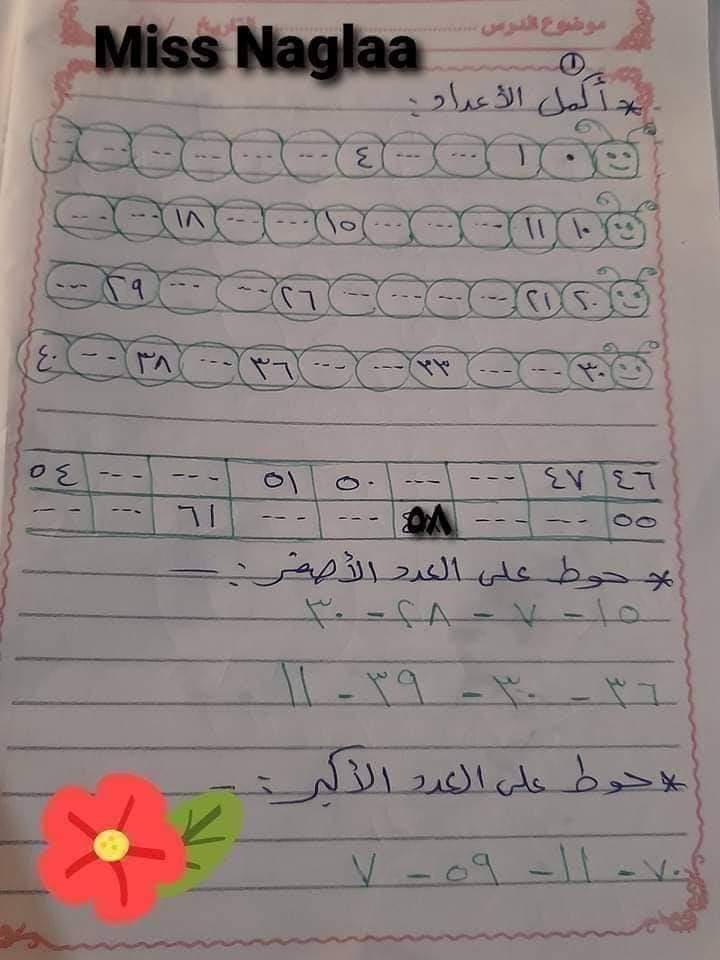 موضوع الدرس ........................ التاريخ / /
Miss Naglaa
①
* أكمل الأعداد :
٠ ١ --- --- ٤ --- --- --- --- --- ---
١٠ ١١ --- --- --- ١٥ --- --- ١٨ --- ---
٢٠ ٢١ --- --- --- --- ٢٦ --- --- ٢٩ ---
٣٠ --- --- ٣٣ --- --- ٣٦ --- ٣٨ --- ٤٠
٤٦ ٤٧ --- --- ٥٠ ٥١ --- --- ٥٤
٥٥ --- --- ٥٨ --- --- ٦١ --- ---
* حوط على العدد الأصغر : -
١٥ - ٧ - ٢٨ - ٣٠
٣٦ - ٣٠ - ٣٩ - ١١
* حوط على العدد الأكبر : -
٧٠ - ١١ - ٥٩ - ٧